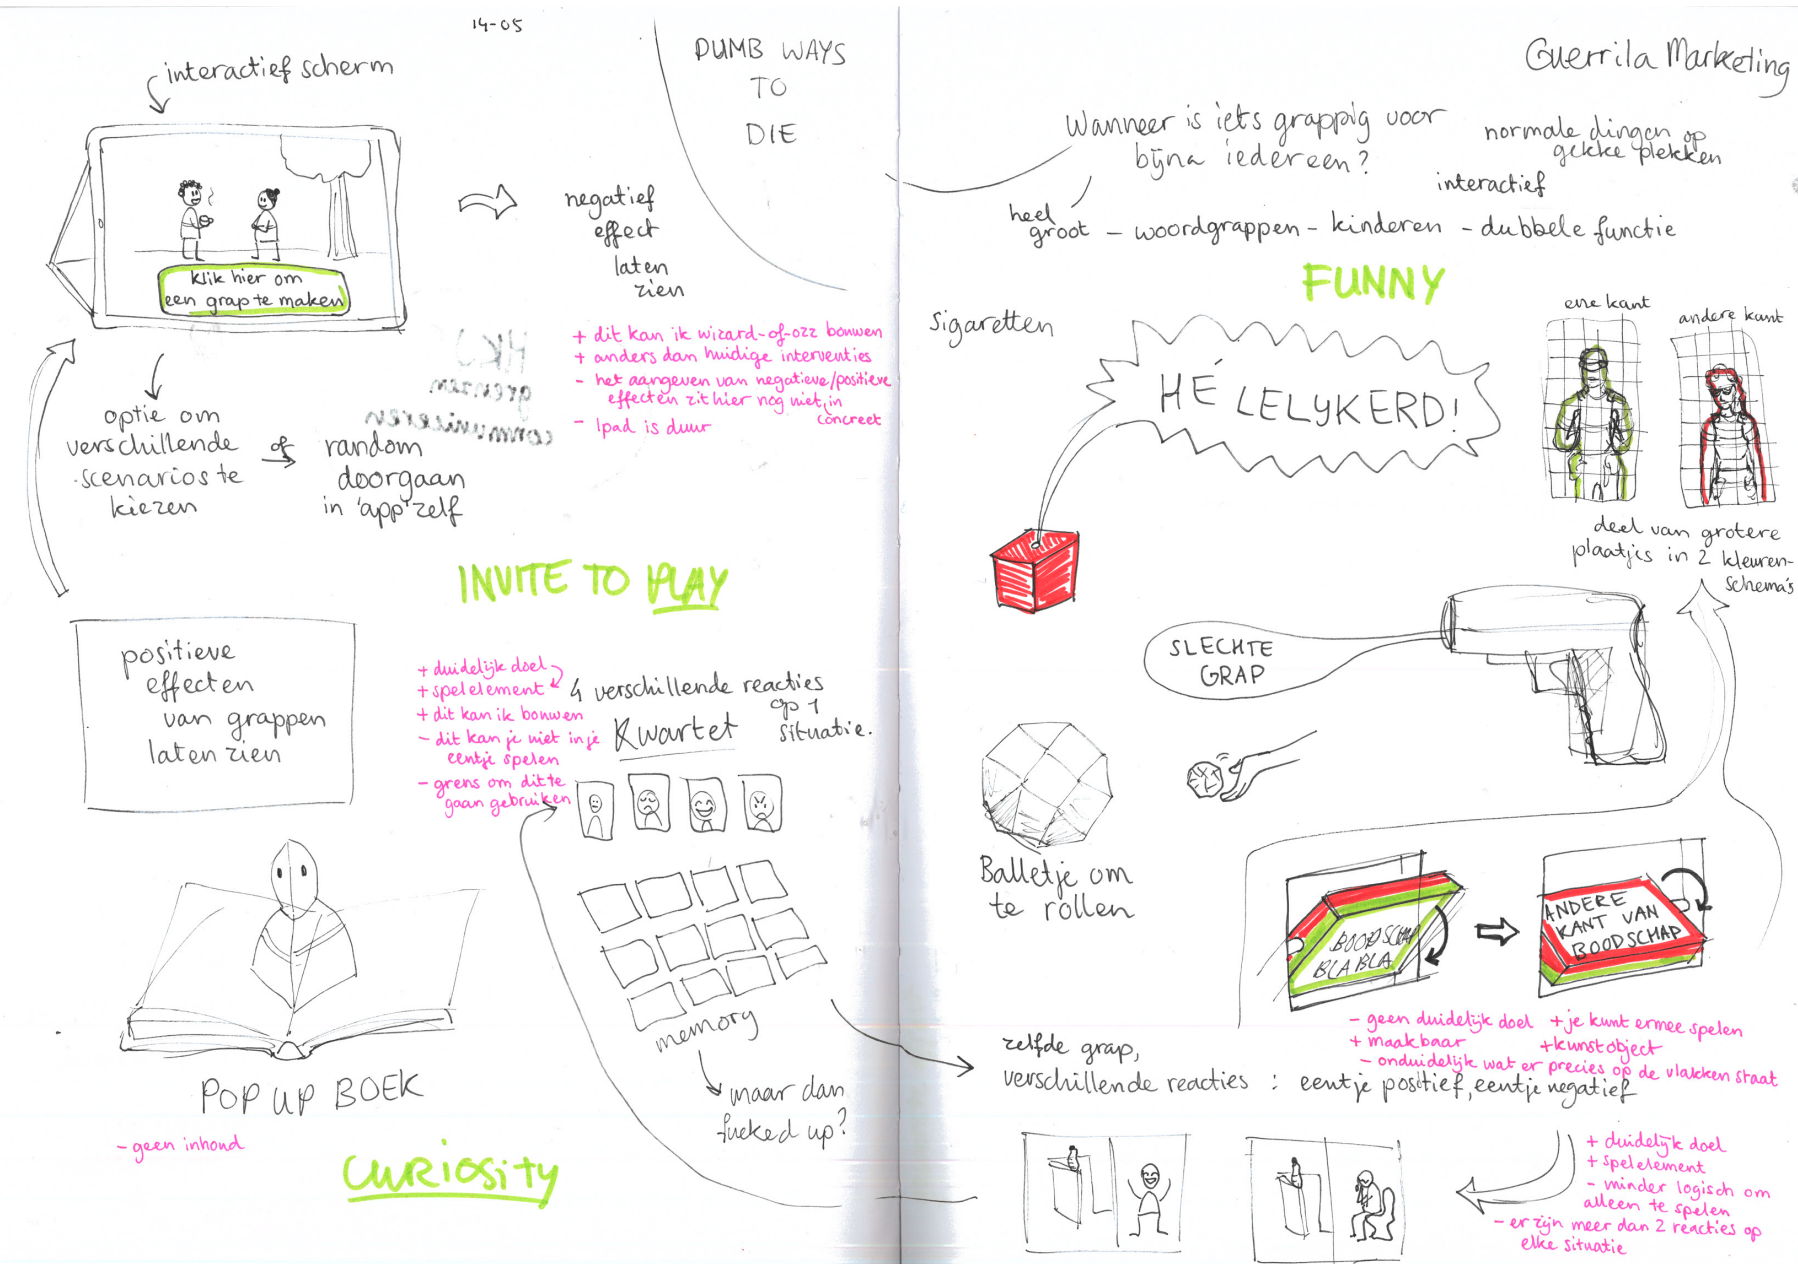 14-05
DUMB WAYS
TO
DIE
interactief scherm
klik hier om
een grap te maken
negatief
effect
laten
zien
+ dit kan ik wizard-of-ozz bouwen
+ anders dan huidige interventies
- het aangeven van negatieve/positieve
effecten zit hier nog niet in
concreet
- Ipad is duur
HKJ
grenzen
communiceren
optie om
verschillende
scenarios te
kiezen
of
random
doorgaan
in 'app' zelf
INVITE TO PLAY
positieve
effecten
van grappen
laten zien
+ duidelijk doel
+ spelelement
+ dit kan ik bouwen
- dit kan je niet in je
eentje spelen
- grens om dit te
gaan gebruiken
4 verschillende reacties
op 1
situatie.
Kwartet
memory
maar dan
fucked up?
POP UP BOEK
- geen inhoud
CURIOSITY
Guerrila Marketing
Wanneer is iets grappig voor
bijna iedereen?
normale dingen op
gekke plekken
interactief
heel
groot - woordgrappen - kinderen - dubbele functie
FUNNY
sigaretten
HÉ LELYKERD!
ene kant
andere kant
deel van grotere
plaatjes in 2 kleuren-
schema's
SLECHTE
GRAP
Balletje om
te rollen
BOODSCHAP
BLA BLA
ANDERE
KANT VAN
BOODSCHAP
- geen duidelijk doel
+ maakbaar
+ je kunt ermee spelen
+ kunstobject
- onduidelijk wat er precies op de vlakken staat
zelfde grap,
verschillende reacties : eentje positief, eentje negatief
+ duidelijk doel
+ spelelement
- minder logisch om
alleen te spelen
- er zijn meer dan 2 reacties op
elke situatie